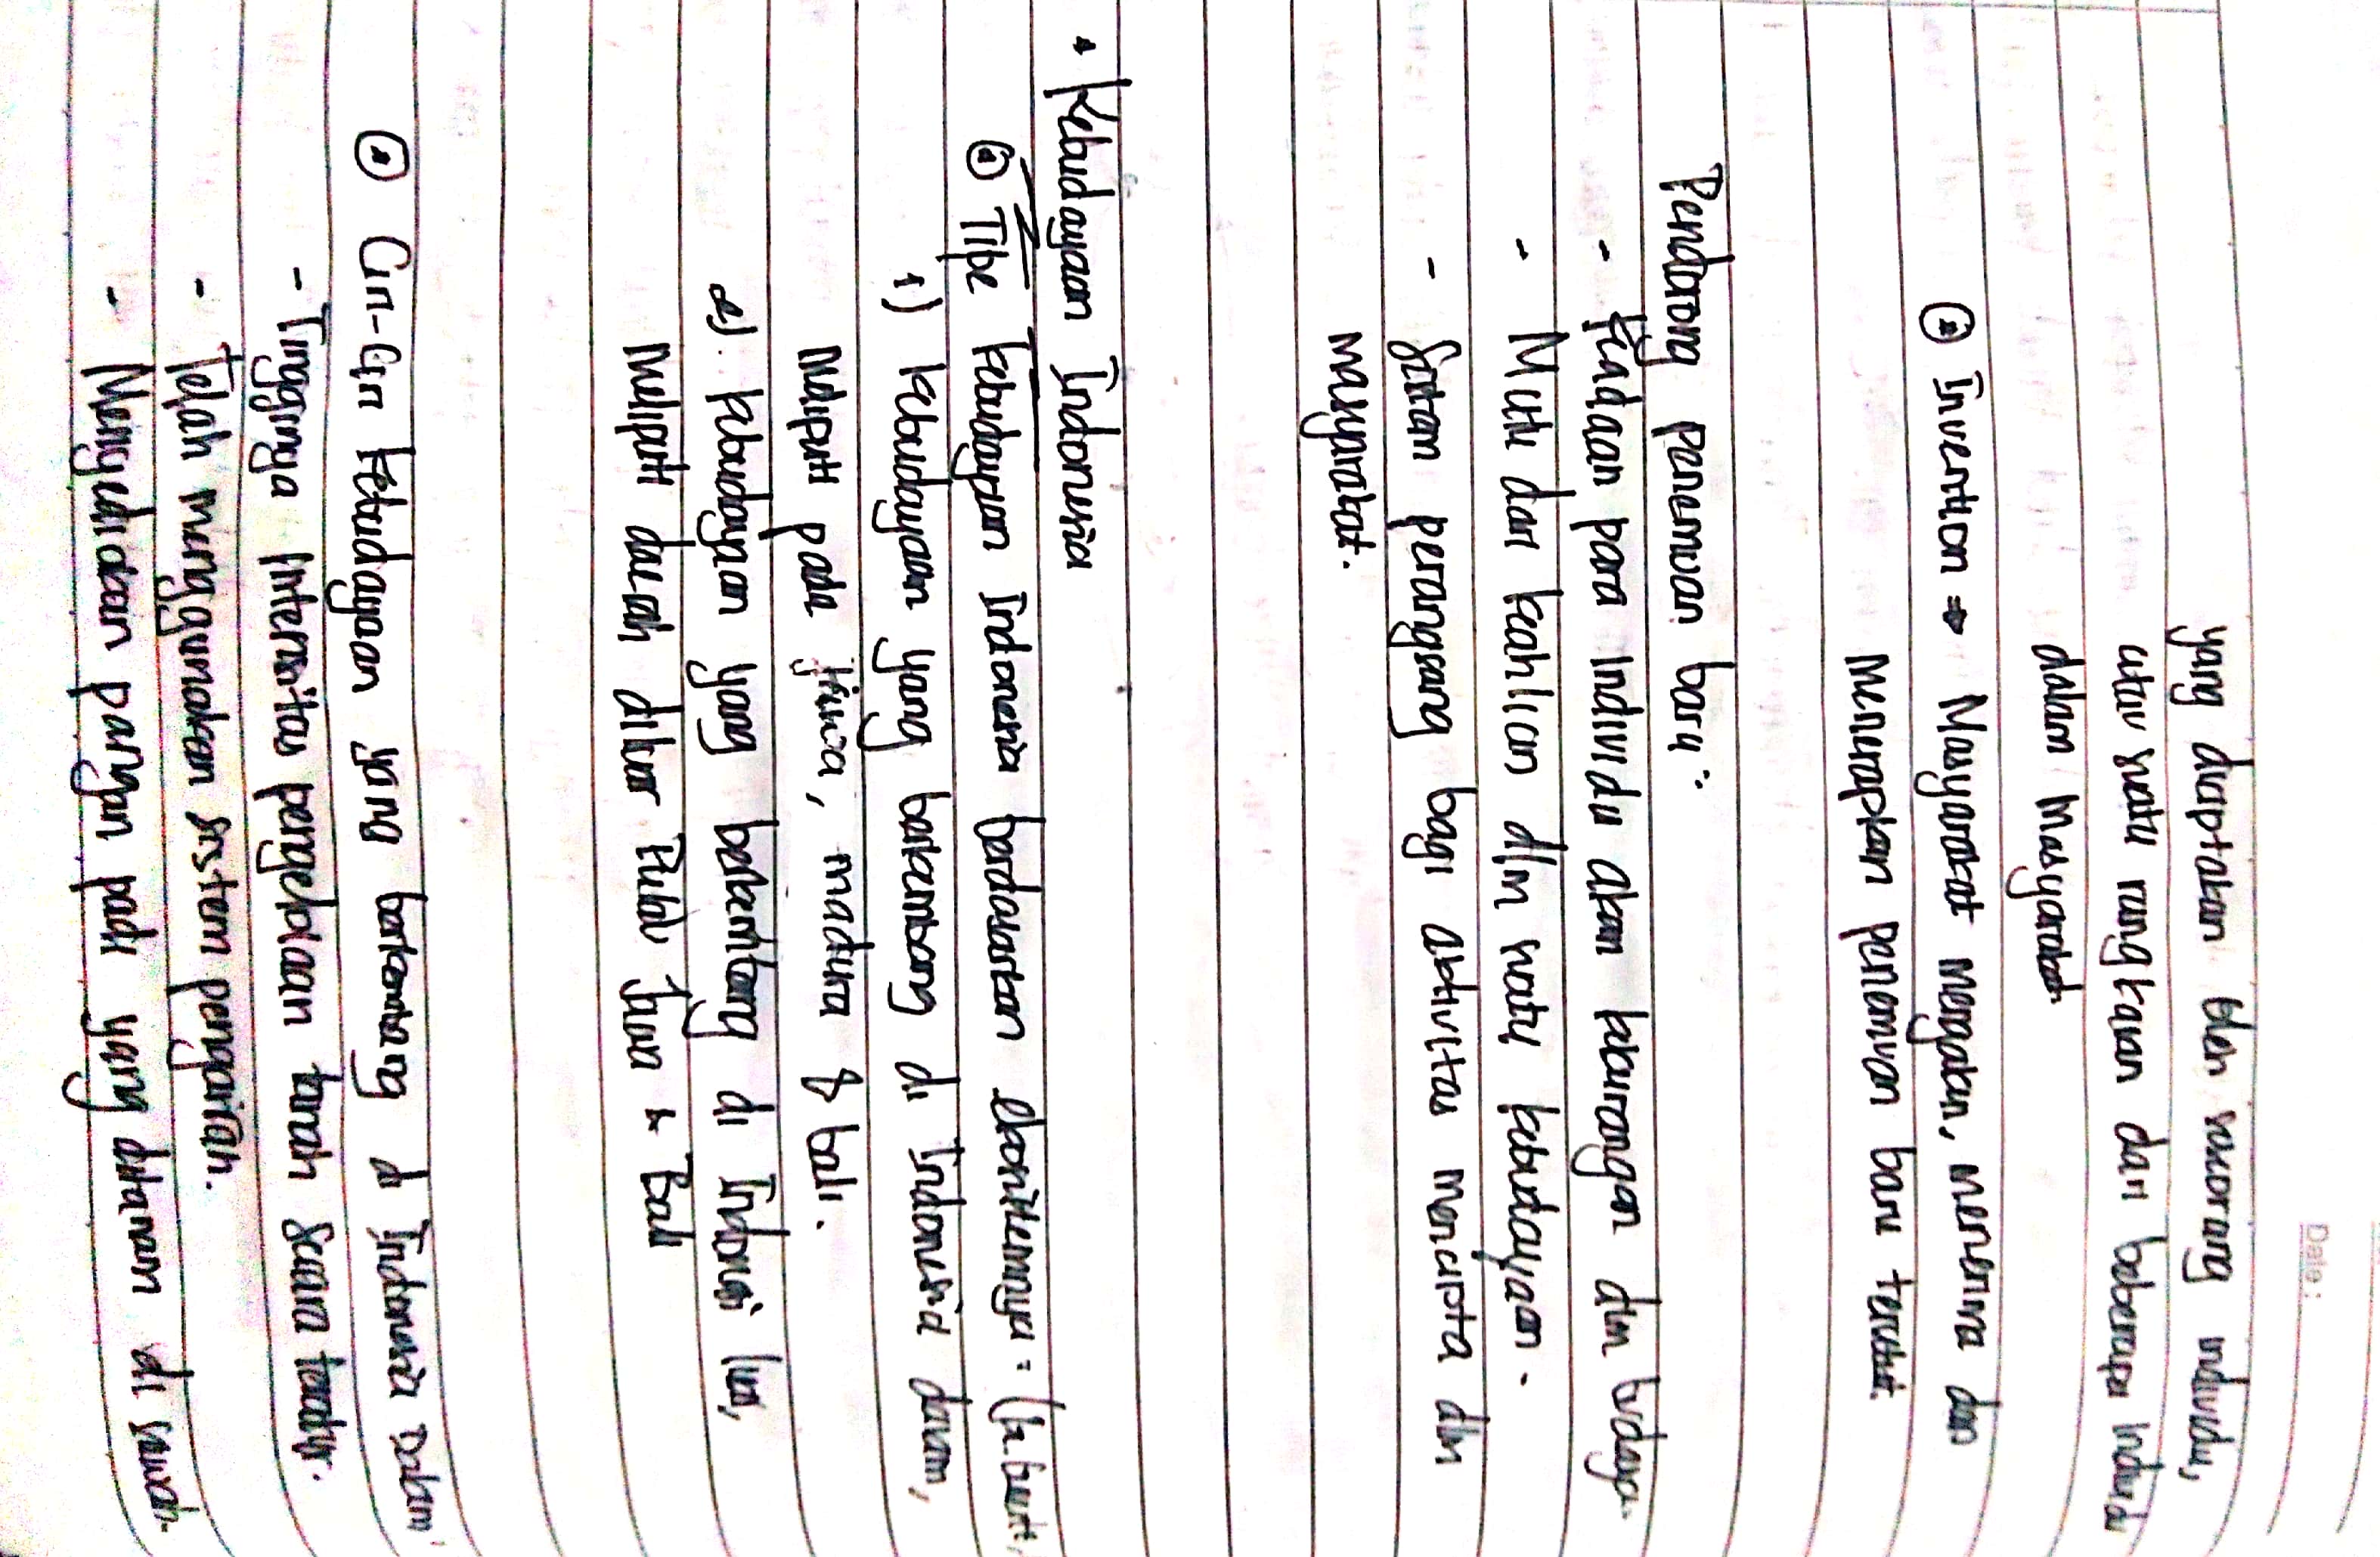 Date :
yang diciptakan oleh seseorang individu,
atau suatu rangkaian dari beberapa individu
dalam masyarakat
Invention → Masyarakat mengakui, menerima dan
Menerapkan penemuan baru tersebut.
Pendorong penemuan baru :
- Keadaan para individu akan kekurangan dlm budaya.
- Mutu dari keahlian dlm suatu kebudayaan.
- Sistem perangsang bagi aktivitas mencipta dlm
masyarakat.
* Kebudayaan Indonesia
Tipe kebudayaan Indonesia berdasarkan ekosistemnya : (
1) kebudayaan yang berkembang di Indonesia dalam,
Meliputi pada jawa, madura & bali.
2) kebudayaan yang berkembang di Indonesia luar,
Meliputi daerah diluar Pulau Jawa & Bali
Ciri-Ciri kebudayaan yang berkembang di Indonesia Dalam
- Tingginya intensitas pengelolaan tanah secara teratur.
- Telah menggunakan sistem pengairan.
- Menyediakan pangan padi yang ditanam di sawah.